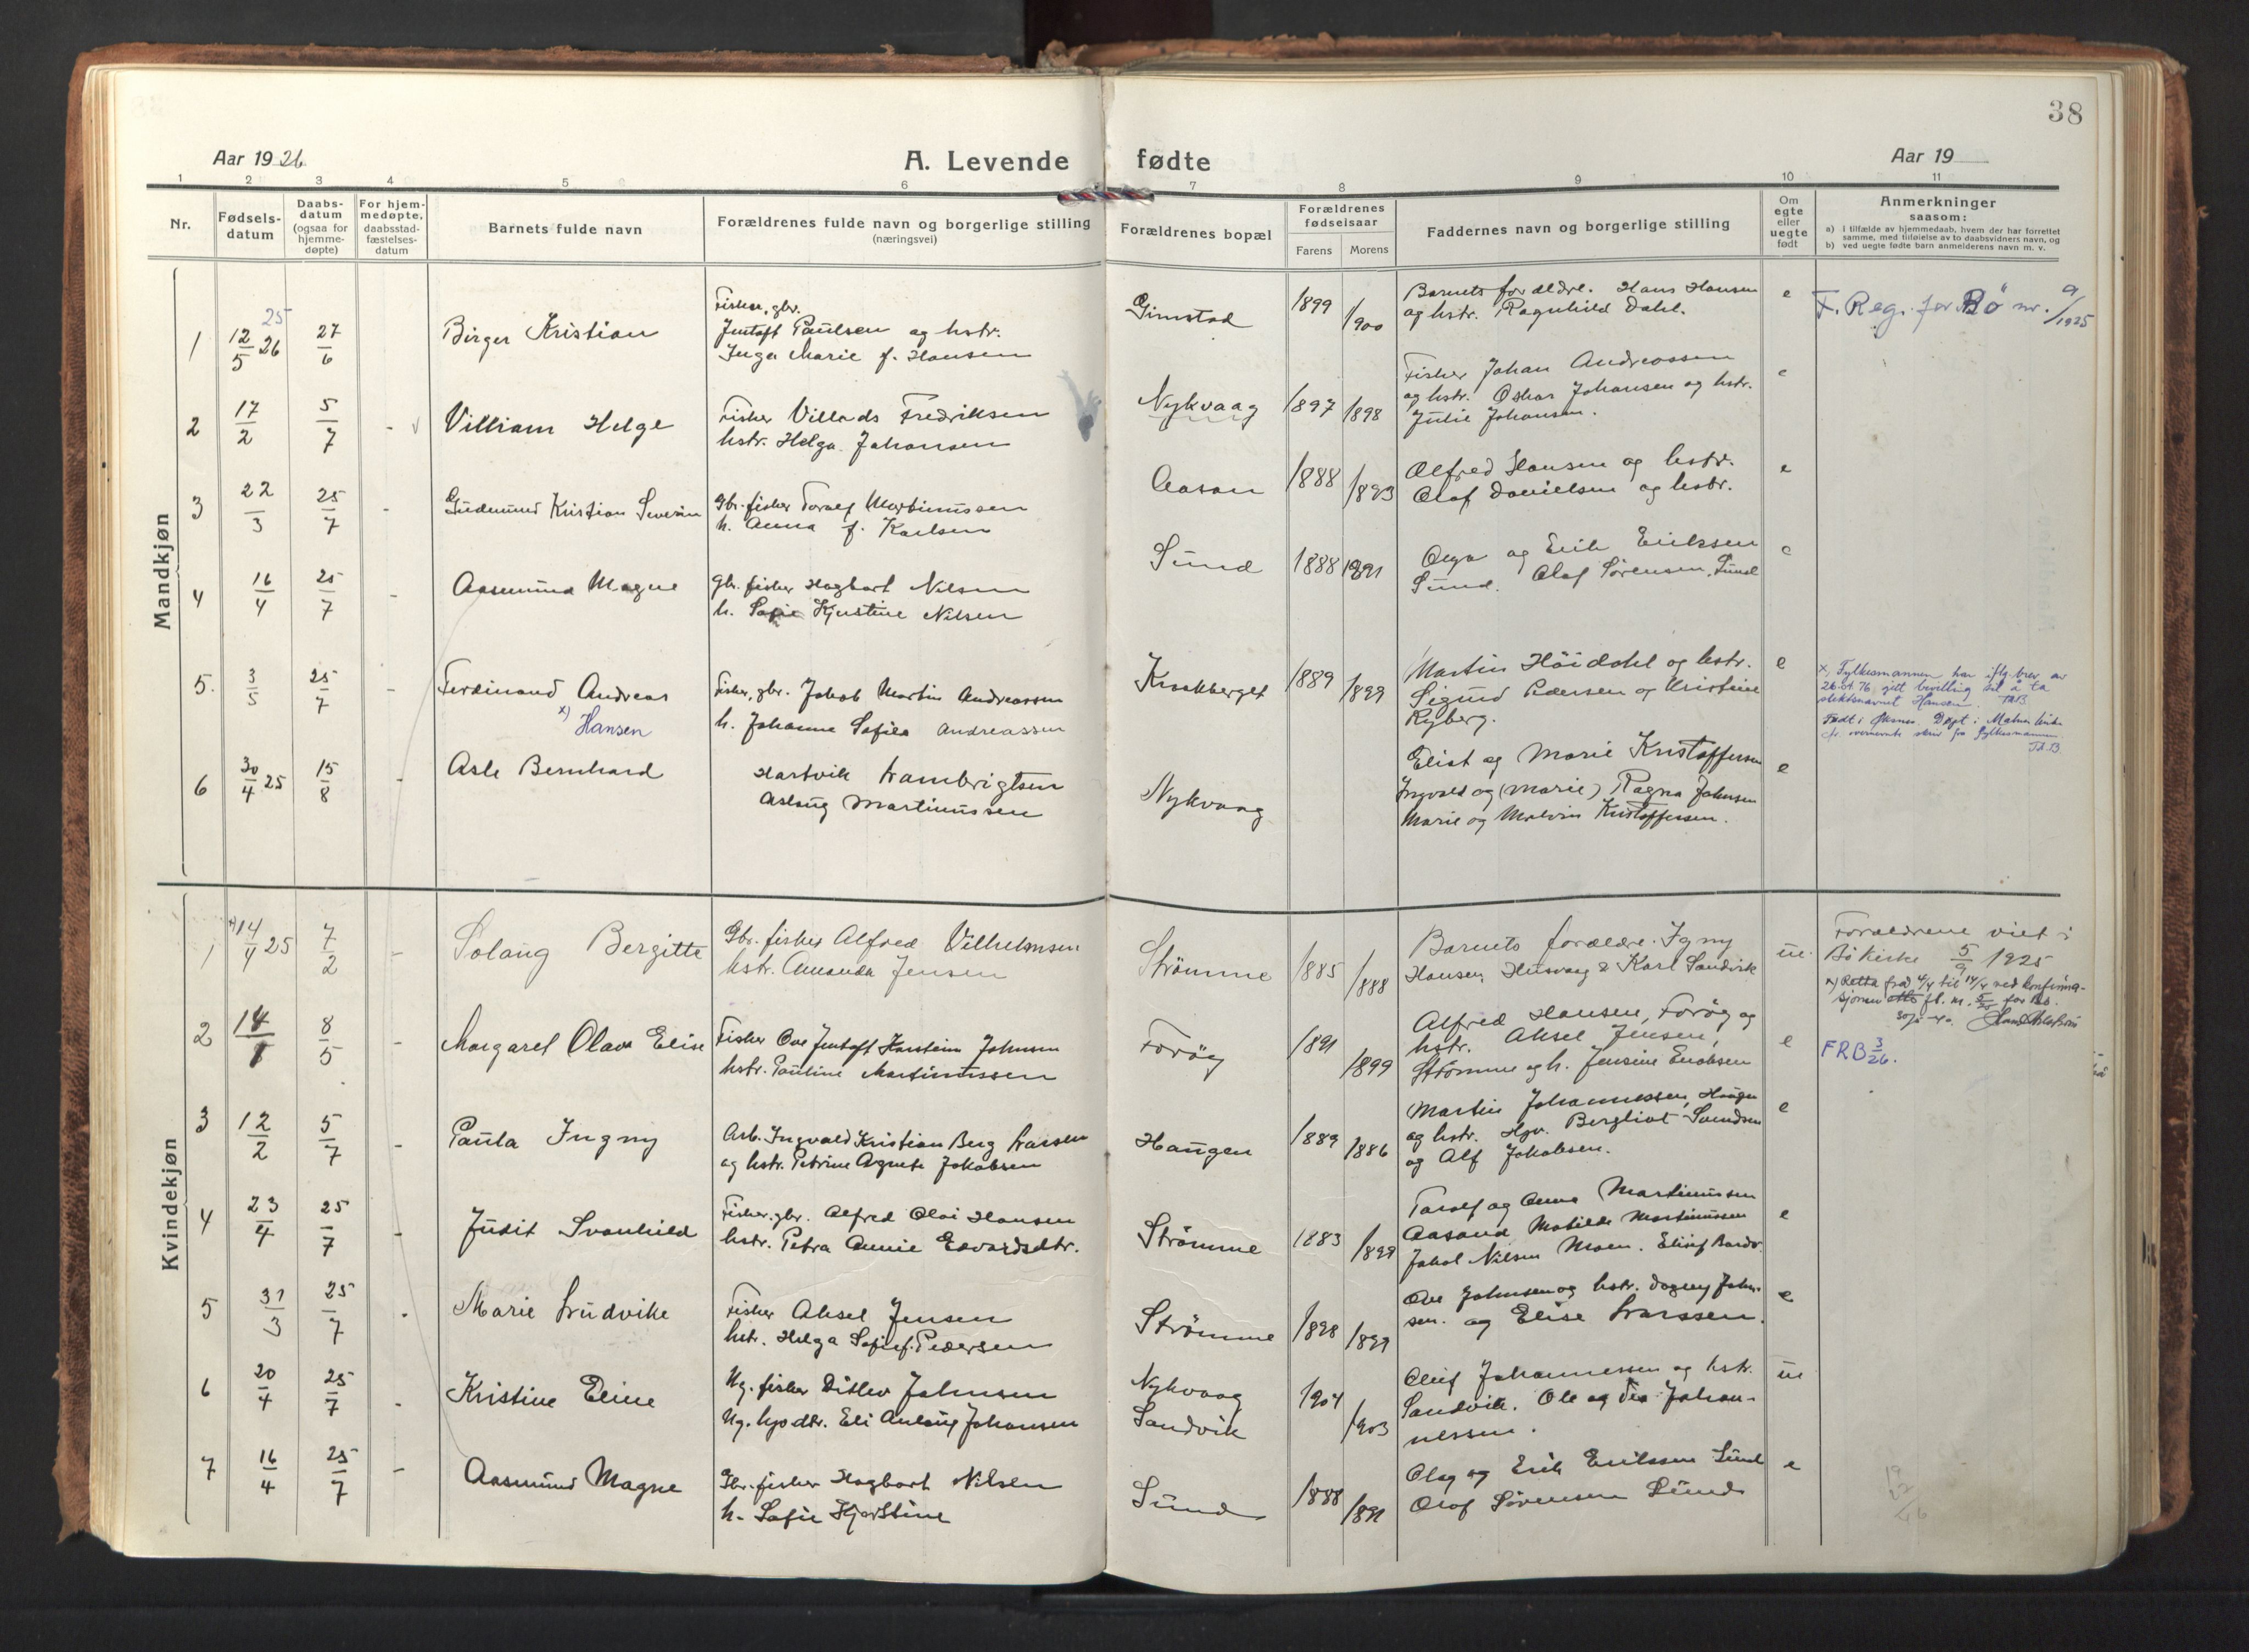 38
Aar 1926
A. Levende
fødte
Aar 19
1 2 3 4 5 6 7 8 9 10 11
Nr.
Fødsels-
datum
Daabs-
datum
(ogsaa for
hjemme-
døpte)
For hjem-
medøpte,
daabsstad-
fæstelses-
datum
Barnets fulde navn
Forældrenes fulde navn og borgerlige stilling
(næringsvei)
Forældrenes bopæl
Forældrenes
fødselsaar
Farens Morens
Faddernes navn og borgerlige stilling
Om
egte
eller
uegte
født
Anmerkninger
saasom:
a) i tilfælde av hjemmedaab, hvem der har forrettet
samme, med tilføielse av to daabsvidners navn, og
b) ved uegte fødte barn anmelderens navn m. v.
Mandkjøn
1 12/5 26 25 27/6 Birger Kristian
Fisker, gbr.
Jentoft Paulsen og hstr.
Inga Marie f. Hansen
Gimstad 1899 1900
Barnets forældre. Hans Hansen
og hstr. Ragnhild Dahl.
e
F. Reg. for Bø nr. 9/1925
2 17/2 5/7 - Villiam Helge
Fisker Villads Fredriksen
hstr. Helga Johansen
Nykvaag 1897 1898
Fisker Johan Andreassen
og hstr. Oskar Johansen og hstr.
Julie Johansen.
e
3 22/3 25/7 - Gudmund Kristian Severin
Gbr. fisker Toralf Martinussen
h. Anna f. Karlsen
Aasan 1888 1893
Alfred Hansen og hstr.
Olaf Danielsen og hstr.
e
4 16/4 25/7 - Aasmund Magne
Gbr. fisker Hagbart Nilsen
h. Sofie Kjerstine Nilsen
Sund 1888 1891
Olga og Erik Eriksen
Sund. Olaf Sørensen, Sund
e
5. 3/5 25/7 - Ferdinand Andreas
x) Hansen
Fisker, gbr. Jakob Martin Andreassen
h. Johanne Sofie Andreassen
Kraakberget 1889 1899
Martin Höidahl og hstr.
Sigurd Pedersen og Kristine
Ryberg.
e
x) Fylkesmannen har iflg. brev av
26.04.76, gitt bevilling til å ta
slektsnavnet Hansen.
Født i Øksnes. Døpt i Malnes kirke
6 30/4 25 15/8 - Asle Bernhard
Hartvik Lambrigtsen
Aslaug Martinussen
Nykvaag
Elist og Marie Kristoffersen
Ingvald og (Marie) Ragna Johnsen
Marie og Malvin Kristoffersen.
e
Kvindekjøn
1 x) 14/4 25 7/2 - Solaug Bergitte
Gbr. fisker Alfred Vilhelmsen
hstr. Amanda Jensen
Strømme 1885 1888
Barnets forældre. Igny
Hansen, Husvaag & Karl Sandvik
ue.
Forældrene viet i
Bø kirke 5/9 1925
x) Retta frå 4/4 til 14/4 ved konfirma-
sjonen
2 14/1 8/5 - Margaret Olava Elise
Fisker Ove Jentoft Karstein Johnsen
hstr. Pauline Martinussen
Forøy 1891 1899
Alfred Hansen, Forøy og
hstr. Aksel Jensen,
Strømme og h. Jensine Enoksen
e
FRB 3/26.
3 12/2 5/7 - Paula Ingny
Arb. Ingvald Kristian Berg Larsen
og hstr. Petrine Agnete Jakobsen
Haugen 1889 1886
Martin Johannessen, Haugen
og hstr. Hgr. Bergliot Svendsen
og Alf Jakobsen.
e
4 23/4 25/7 - Judit Svanhild
Fisker, gbr. Alfred Olai Hansen
hstr. Petra Annie Edvardsdtr.
Strømme 1883 1899
Toralf og Anna Martinussen
Aasand, Matilde Martinussen
Jakob Nilsen Moen.
e
5 31/3 25/7 - Marie Ludvike
Fisker Aksel Jensen
hstr. Helga Sofie f. Pedersen
Strømme 1898 1899
Ove Johnsen og hstr. Dagny John-
sen. og Elise Larssen.
e
6 20/4 25/7 - Kristine Eline
Ug. fisker Ditlev Johnsen
Ug. hjo dtr. Eli Anlaug Johansen
Nykvaag
Sandvik
1904 1903
Oluf Johannessen og hstr.
Sandvik. Ole og Tea Johan-
nessen.
ue
7 16/4 25/7 - Aasmund Magne
Gbr. fisker Hagbart Nilsen
h. Sofie Kjerstine
Sund 1888 1891
Olag og Erik Eriksen Sund
Olaf Sørensen Sund
e